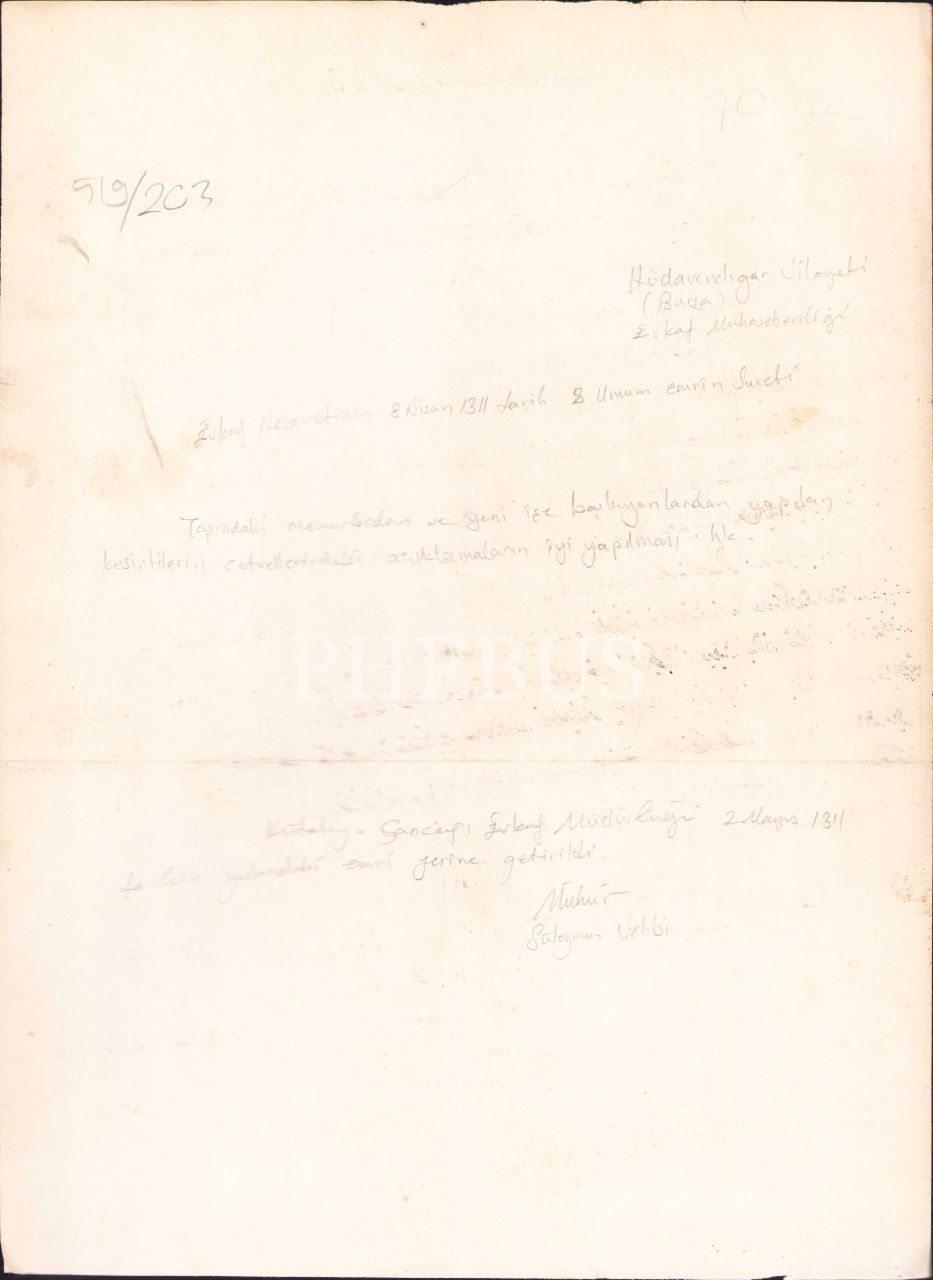 70 203
519/203
Hüdavendigar Vilayeti
(Bursa)
Evkaf Muhasebeciliği
Evkaf Nezaretinin 8 Nisan 1311 tarih 8 Umum emrin Sureti
Taşradaki memurlardan ve yeni işe başlayanlardan yapılan
kesintilerin cetvellerindeki açıklamaların iyi yapılması hk.
PHEBUS
Kütahya Sancağı Evkaf Müdürlüğü 2 Mayıs 1311
tarihin yukarıdaki emri yerine getirildi.
Mühür
Süleyman Vehbi